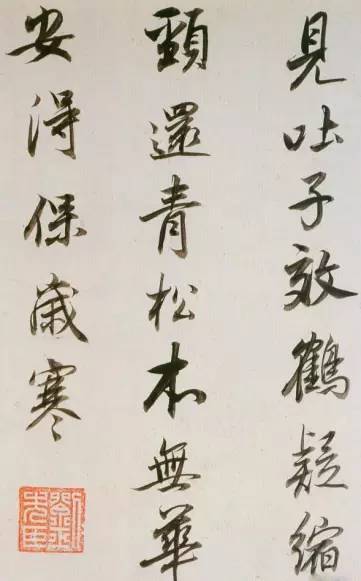 見吐子效鶴疑縮
頸還青松本無華
安得保歲寒